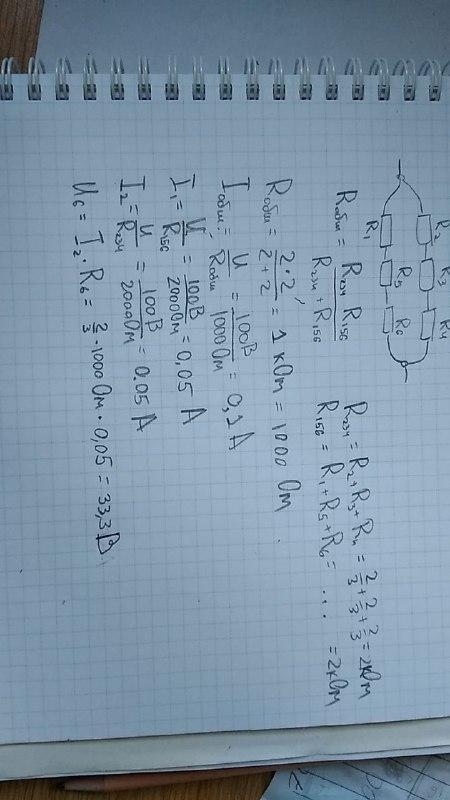 R₂ R₃ R₄
R₁ R₅ R₆
R₂₃₄ = R₂ + R₃ + R₄ = 2/3 + 2/3 + 2/3 = 2кОм
Rобщ = R₂₃₄ R₁₅₆ / R₂₃₄ + R₁₅₆
R₁₅₆ = R₁ + R₅ + R₆ = ... = 2кОм
Rобщ = 2·2 / 2+2 = 1 кОм = 1000 Ом.
Iобщ = U / Rобщ = 100В / 1000 Ом = 0,1 А
I₁ = U / R₁₅₆ = 100В / 2000 Ом = 0,05 А
I₂ = U / R₂₃₄ = 100В / 2000 Ом = 0.05 А
U₆ = I₂ · R₆ = 2/3 · 1000 Ом · 0,05 = 33,3 В